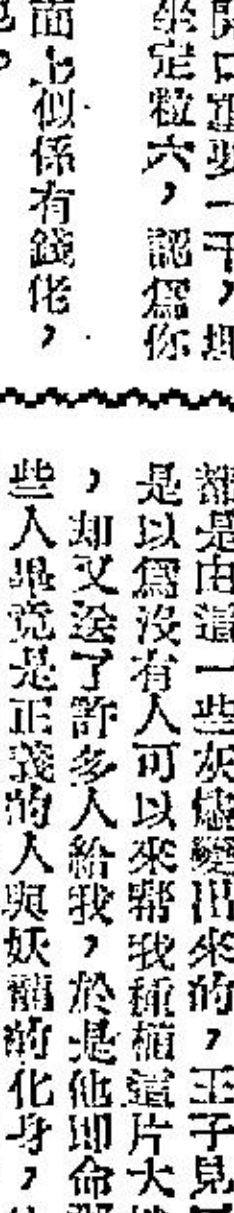 開口重要一千，
坐定粒六，認爲你
面上似係有錢佬，
都是由這一些灰燼變出來的，王子見
是以爲沒有人可以來幫我種植這片大
，却又送了許多人給我，於是他即命
些人畢竟是正義的人與妖龍的化身，